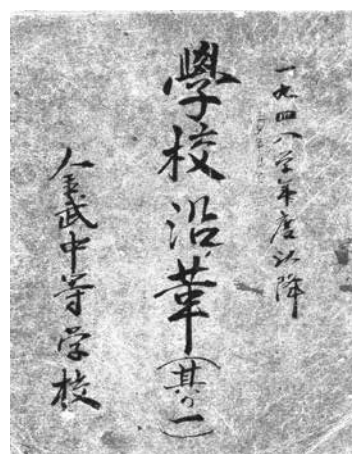 一九四八学年度以降
學校沿革(其の一)
金武中等学校